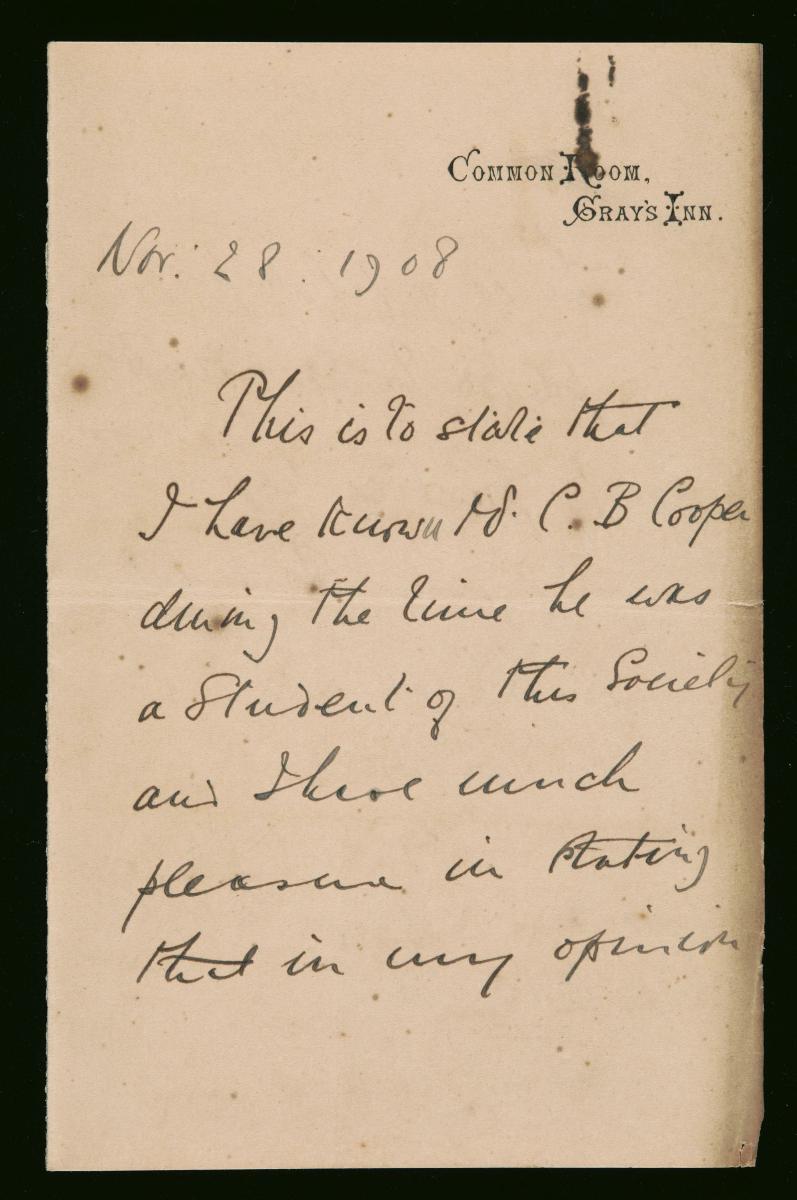 COMMON ROOM,
GRAY'S INN.
Nov. 28. 1908
This is to state that
I have known Mr. C. B Cooper
during the time he was
a Student of this Society
and I have much
pleasure in stating
that in my opinion